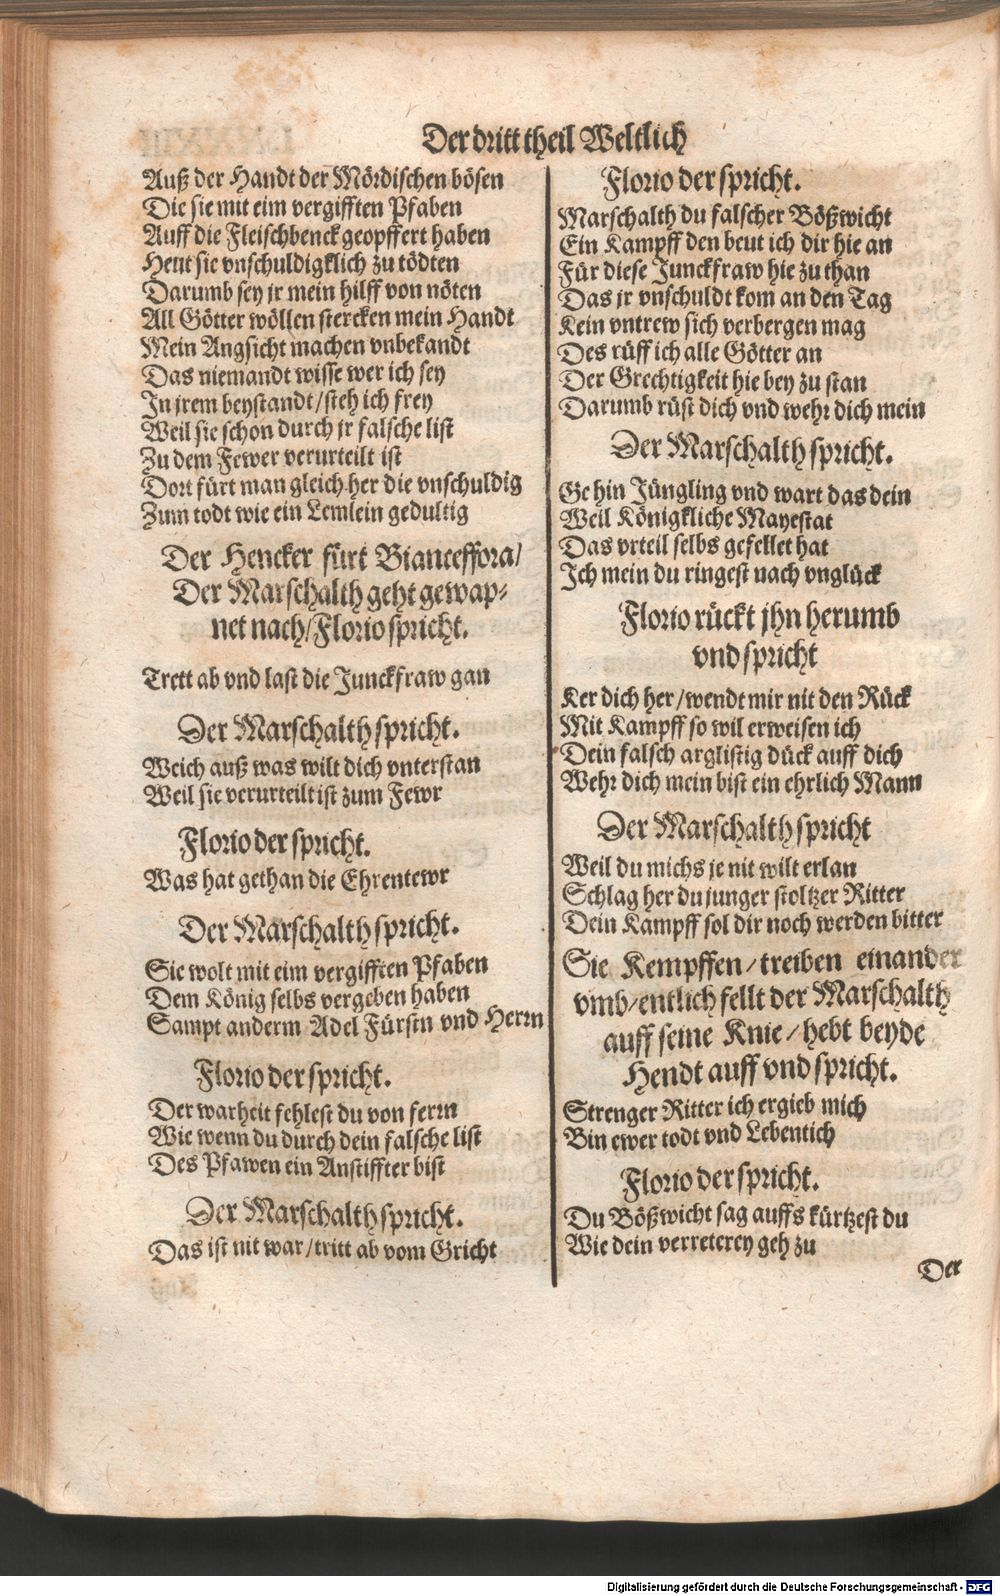 Der dritt theil Weltlich
Auß der Handt der Mördischen bösen
Die sie mit eim vergifften Pfaben
Auff die Fleischbenck geopffert haben
Heut sie vnschuldigklich zu tödten
Darumb sey jr mein hilff von nöten
All Götter wöllen stercken mein Handt
Mein Angsicht machen vnbekandt
Das niemandt wisse wer ich sey
In jrem beystandt/steh ich frey
Weil sie schon durch jr falsche list
Zu dem Fewer verurteilt ist
Dort fürt man gleich her die vnschuldig
Zum todt wie ein Lemlein gedultig
Der Hencker fürt Bianceffora/
Der Marschalth geht gewap-
net nach/Florio spricht.
Trett ab vnd last die Junckfraw gan
Der Marschalth spricht.
Weich auß was wilt dich vnterstan
Weil sie verurteilt ist zum Fewr
Florio der spricht.
Was hat gethan die Ehrentewr
Der Marschalth spricht.
Sie wolt mit eim vergifften Pfaben
Dem König selbs vergeben haben
Sampt anderm Adel Fürstn vnd Herrn
Florio der spricht.
Der warheit fehlest du von ferrn
Wie wenn du durch dein falsche list
Des Pfawen ein Anstiffter bist
Der Marschalth spricht.
Das ist nit war/tritt ab vom Gricht
Florio der spricht.
Marschalth du falscher Bößwicht
Ein Kampff den beut ich dir hie an
Für diese Junckfraw hie zu than
Das jr vnschuldt kom an den Tag
Kein vntrew sich verbergen mag
Des rüff ich alle Götter an
Der Grechtigkeit hie bey zu stan
Darumb rüst dich vnd wehr dich mein
Der Marschalth spricht.
Ge hin Jüngling vnd wart das dein
Weil Königkliche Mayestat
Das vrteil selbs gefellet hat
Ich mein du ringest nach vnglück
Florio rückt jhn herumb
vnd spricht
Ker dich her/wendt mir nit den Rück
Mit Kampff so wil erweisen ich
Dein falsch arglistig dück auff dich
Wehr dich mein bist ein ehrlich Mann
Der Marschalth spricht
Weil du michs je nit wilt erlan
Schlag her du junger stoltzer Ritter
Dein Kampff sol dir noch werden bitter
Sie Kempffen/treiben einander
vmb/entlich fellt der Marschalth
auff seine Knie/hebt beyde
Hendt auff vnd spricht.
Strenger Ritter ich ergieb mich
Bin ewer todt vnd Lebentich
Florio der spricht.
Du Bößwicht sag auffs kürtzest du
Wie dein verreterey geh zu
Der
Digitalisierung gefördert durch die Deutsche Forschungsgemeinschaft - DFG